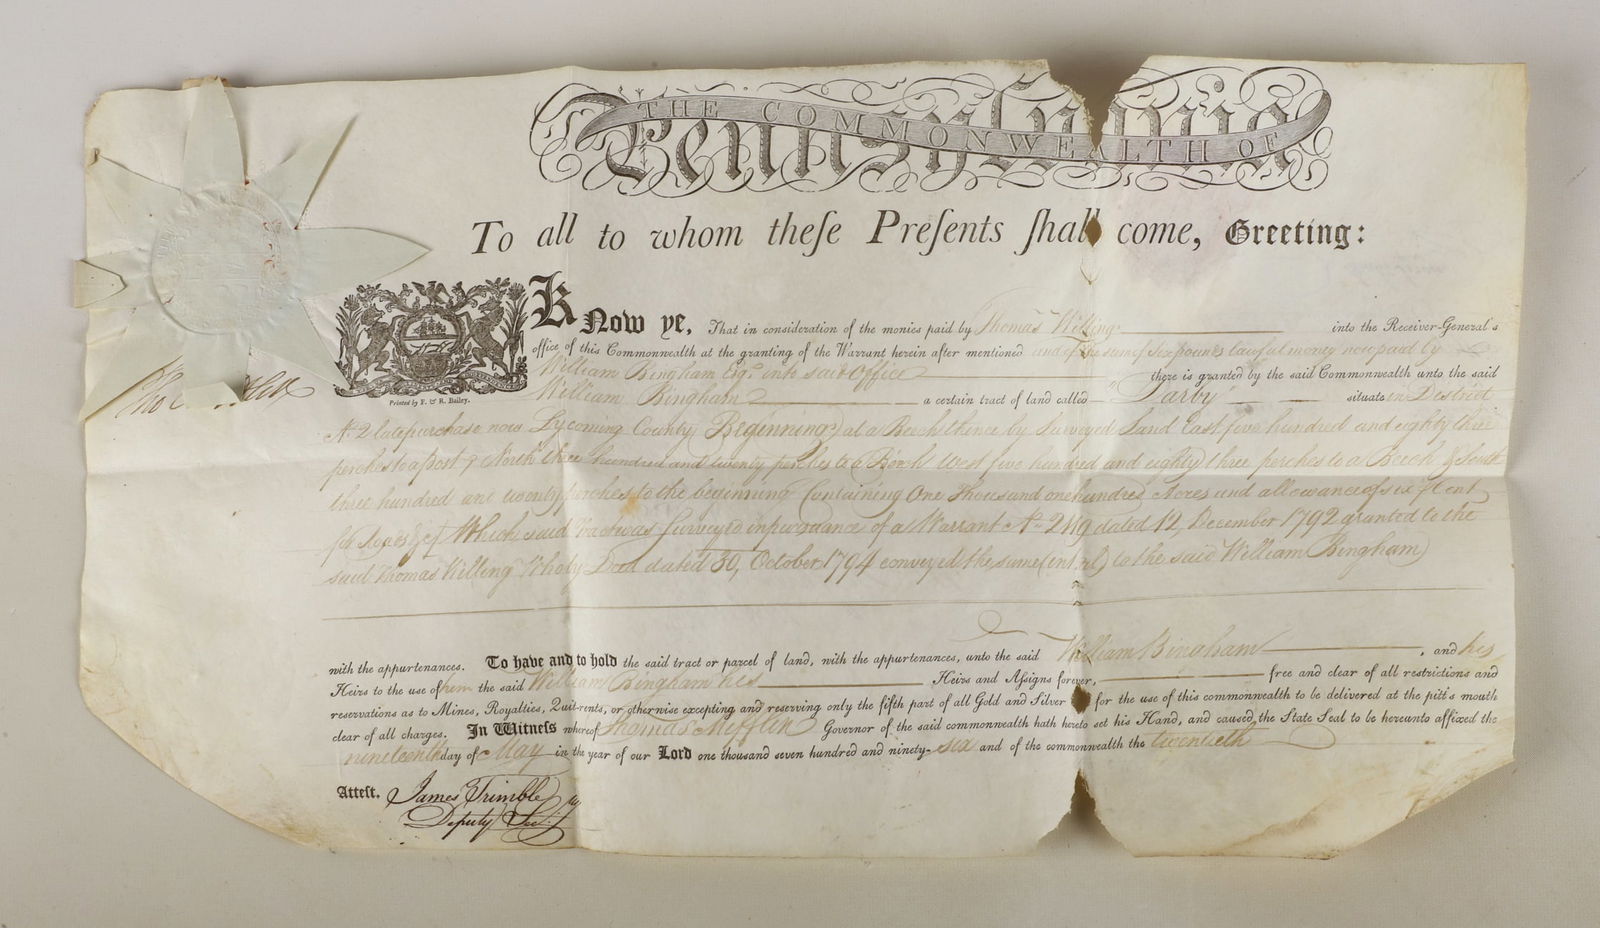 THE COMMONWEALTH OF
Pennsylvania
To all to whom theſe Preſents ſhall come, Greeting:
Know ye, That in conſideration of the monies paid by Thomas Willing into the Receiver-General's
office of this Commonwealth at the granting of the Warrant herein after mentioned and of the sum of Six pounds lawful money now paid by
William Bingham Esqr. into said Office there is granted by the ſaid Commonwealth unto the ſaid
William Bingham a certain tract of land called "Darby" ſituate in District
No 2 late purchase now Lycoming County Beginning at a Beech thence by Surveyed Land East five hundred and eighty three
perches to a post, North three hundred and twenty perches to a Birch West five hundred and eighty three perches to a Beech & South
three hundred and twenty perches to the beginning Containing One Thousand one hundred Acres and allowance of six P cent
for Roads &c Which said Tract was Surveyed in pursuance of a Warrant No dated 12, December 1792 granted to the
said Thomas Willing Who by Deed dated 30, October 1794 conveyed the same to the said William Bingham
with the appurtenances. To have and to hold the ſaid tract or parcel of land, with the appurtenances, unto the ſaid William Bingham, and his
Heirs to the uſe of him the ſaid William Bingham his Heirs and Aſſigns forever, free and clear of all reſtrictions and
reſervations as to Mines, Royalties, Quit-rents, or otherwiſe excepting and reſerving only the fifth part of all Gold and Silver for the uſe of this commonwealth to be delivered at the pit's mouth
clear of all charges. In Witneſs whereof Thomas Mifflin Governor of the ſaid commonwealth hath hereto ſet his Hand, and cauſed the State Seal to be hereunto affixed the
nineteenth day of May in the year of our Lord one thouſand ſeven hundred and ninety-six and of the commonwealth the twentieth
Printed by F. & R. Bailey.
Atteſt. James Trimble
Deputy Secy.